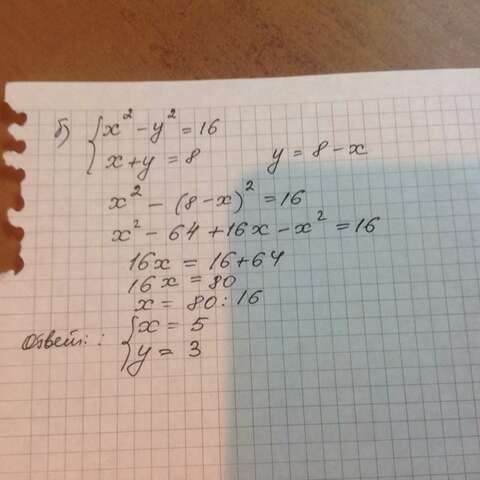 б) { x² - y² = 16
x + y = 8   y = 8 - x
x² - (8 - x)² = 16
x² - 64 + 16x - x² = 16
16x = 16 + 64
16x = 80
x = 80 : 16
Ответ: : { x = 5
y = 3